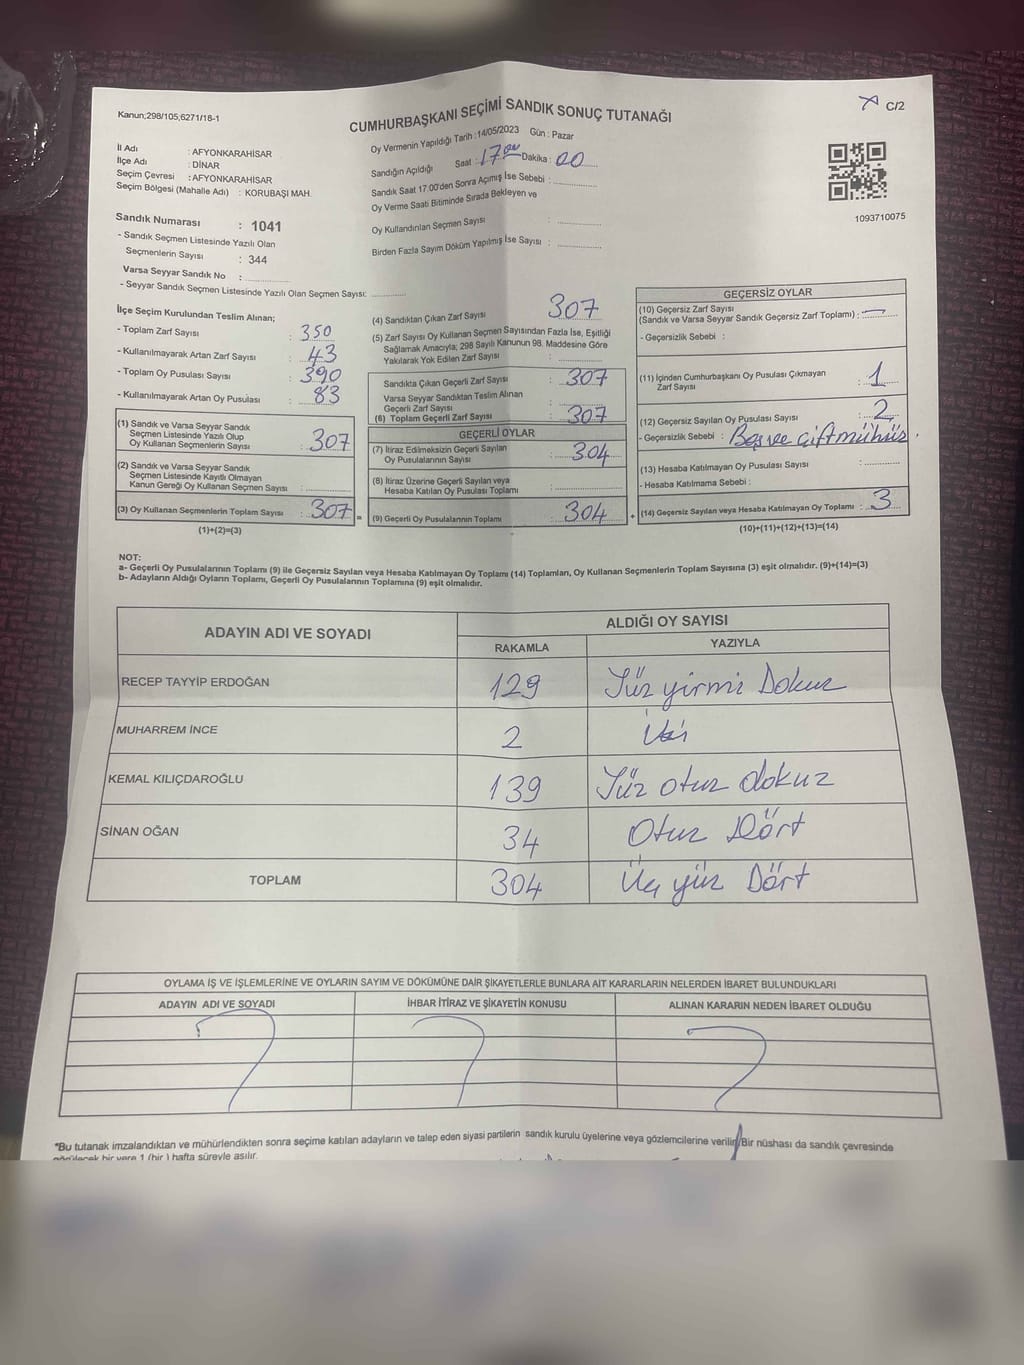 C/2
Kanun;298/105,6271/18-1
CUMHURBAŞKANI SEÇİMİ SANDIK SONUÇ TUTANAĞI
Oy Vermenin Yapıldığı Tarih :14/05/2023 Gün : Pazar
İl Adı : AFYONKARAHİSAR
İlçe Adı : DİNAR
Seçim Çevresi : AFYONKARAHİSAR
Seçim Bölgesi (Mahalle Adı) : KORUBAŞI MAH.
Sandığın Açıldığı Saat : 17 00 Dakika : 00
Sandık Saat 17:00'den Sonra Açımış İse Sebebi :
Oy Verme Saati Bitiminde Sırada Bekleyen ve
Oy Kullandırılan Seçmen Sayısı :
Birden Fazla Sayım Döküm Yapılmış İse Sayısı :
1093710075
Sandık Numarası : 1041
- Sandık Seçmen Listesinde Yazılı Olan
Seçmenlerin Sayısı : 344
Varsa Seyyar Sandık No :
- Seyyar Sandık Seçmen Listesinde Yazılı Olan Seçmen Sayısı:
İlçe Seçim Kurulundan Teslim Alınan;
- Toplam Zarf Sayısı : 350
- Kullanılmayarak Artan Zarf Sayısı : 43
- Toplam Oy Pusulası Sayısı : 390
- Kullanılmayarak Artan Oy Pusulası : 83
(1) Sandık ve Varsa Seyyar Sandık
Seçmen Listesinde Yazılı Olup
Oy Kullanan Seçmenlerin Sayısı : 307
(2) Sandık ve Varsa Seyyar Sandık
Seçmen Listesinde Kayıtlı Olmayan
Kanun Gereği Oy Kullanan Seçmen Sayısı :
(3) Oy Kullanan Seçmenlerin Toplam Sayısı : 307 =
(1)+(2)=(3)
(4) Sandıktan Çıkan Zarf Sayısı 307
(5) Zarf Sayısı Oy Kullanan Seçmen Sayısından Fazla İse, Eşitliği
Sağlamak Amacıyla; 298 Sayılı Kanunun 98. Maddesine Göre
Yakılarak Yok Edilen Zarf Sayısı :
Sandıkta Çıkan Geçerli Zarf Sayısı : 307
Varsa Seyyar Sandıktan Teslim Alınan
Geçerli Zarf Sayısı :
(6) Toplam Geçerli Zarf Sayısı : 307
GEÇERLİ OYLAR
(7) İtiraz Edilmeksizin Geçerli Sayılan
Oy Pusulalarının Sayısı : 304
(8) İtiraz Üzerine Geçerli Sayılan veya
Hesaba Katılan Oy Pusulası Toplamı :
(9) Geçerli Oy Pusulalarının Toplamı : 304 +
GEÇERSİZ OYLAR
(10) Geçersiz Zarf Sayısı
(Sandık ve Varsa Seyyar Sandık Geçersiz Zarf Toplamı) : —
- Geçersizlik Sebebi :
(11) İçinden Cumhurbaşkanı Oy Pusulası Çıkmayan
Zarf Sayısı : 1
(12) Geçersiz Sayılan Oy Pusulası Sayısı : 2
- Geçersizlik Sebebi : Boş ve çift mühür.
(13) Hesaba Katılmayan Oy Pusulası Sayısı :
- Hesaba Katılmama Sebebi :
(14) Geçersiz Sayılan veya Hesaba Katılmayan Oy Toplamı : 3
(10)+(11)+(12)+(13)=(14)
NOT:
a- Geçerli Oy Pusulalarının Toplamı (9) ile Geçersiz Sayılan veya Hesaba Katılmayan Oy Toplamı (14) Toplamları, Oy Kullanan Seçmenlerin Toplam Sayısına (3) eşit olmalıdır. (9)+(14)=(3)
b- Adayların Aldığı Oyların Toplamı, Geçerli Oy Pusulalarının Toplamına (9) eşit olmalıdır.
ADAYIN ADI VE SOYADI ALDIĞI OY SAYISI
RAKAMLA YAZIYLA
RECEP TAYYİP ERDOĞAN 129 Yüz yirmi Dokuz
MUHARREM İNCE 2 İki
KEMAL KILIÇDAROĞLU 139 Yüz otuz dokuz
SİNAN OĞAN 34 Otuz Dört
TOPLAM 304 Üç yüz Dört
OYLAMA İŞ VE İŞLEMLERİNE VE OYLARIN SAYIM VE DÖKÜMÜNE DAİR ŞİKAYETLERLE BUNLARA AİT KARARLARIN NELERDEN İBARET BULUNDUKLARI
ADAYIN ADI VE SOYADI İHBAR İTİRAZ VE ŞİKAYETİN KONUSU ALINAN KARARIN NEDEN İBARET OLDUĞU
*Bu tutanak imzalandıktan ve mühürlendikten sonra seçime katılan adayların ve talep eden siyasi partilerin sandık kurulu üyelerine veya gözlemcilerine verilir. Bir nüshası da sandık çevresinde
görülecek bir yere 1 (bir ) hafta süreyle asılır.